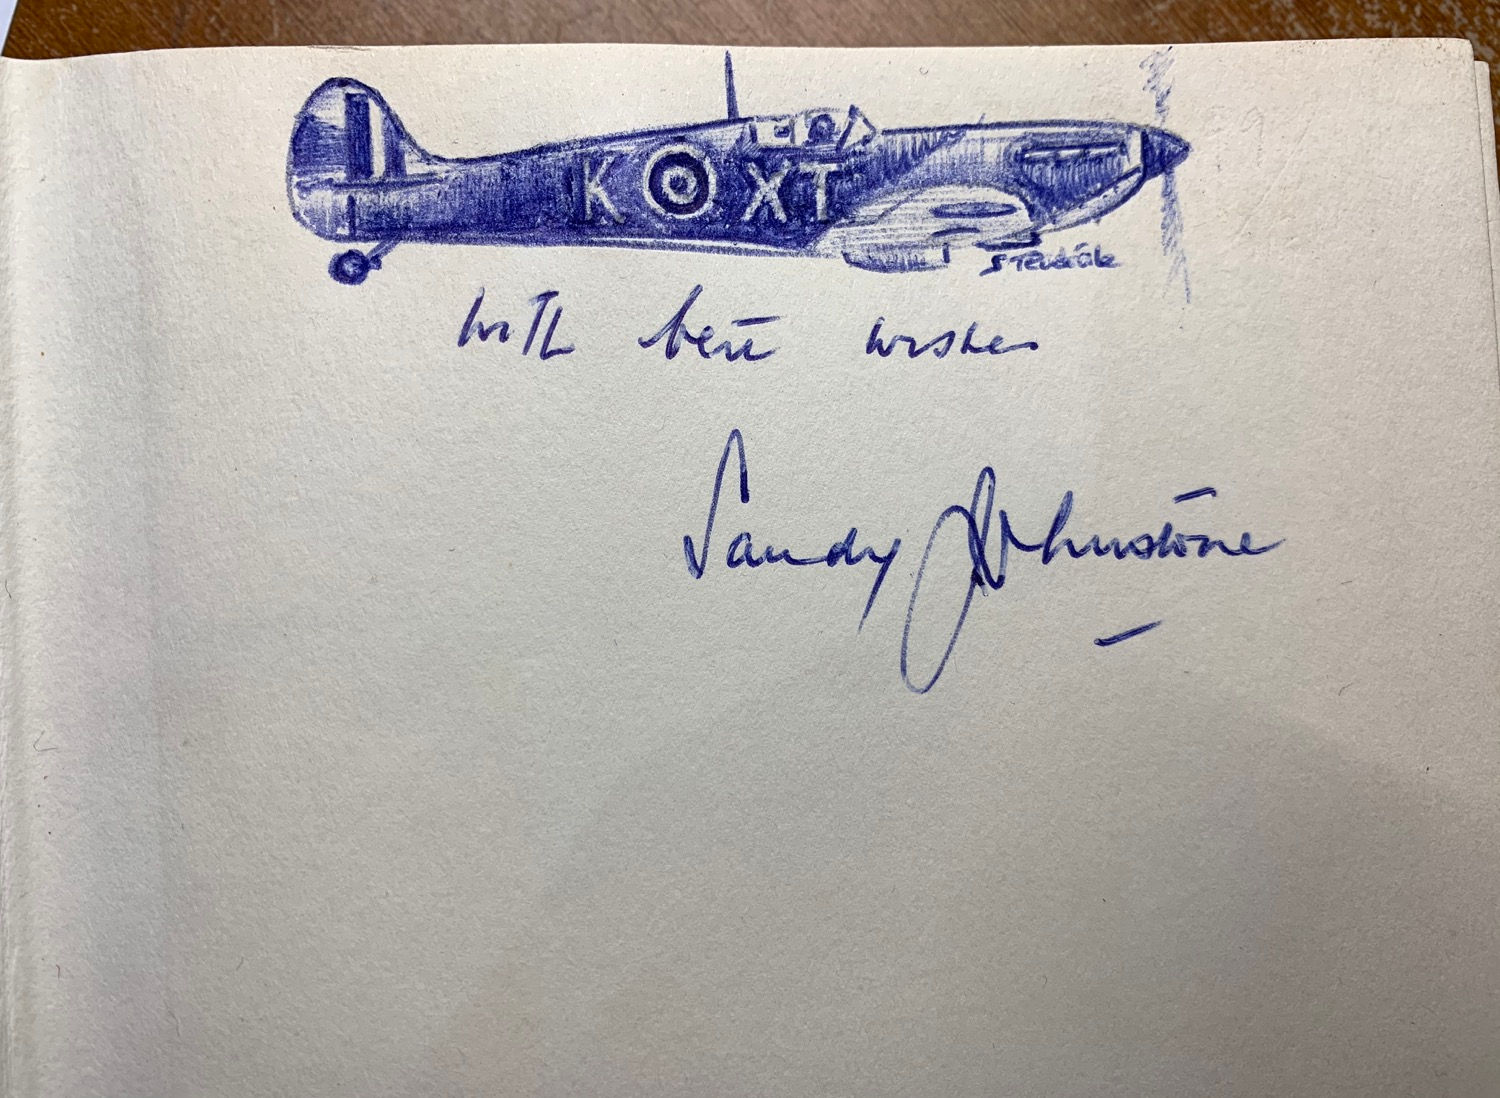 K XT
with best wishes
Sandy Johnstone